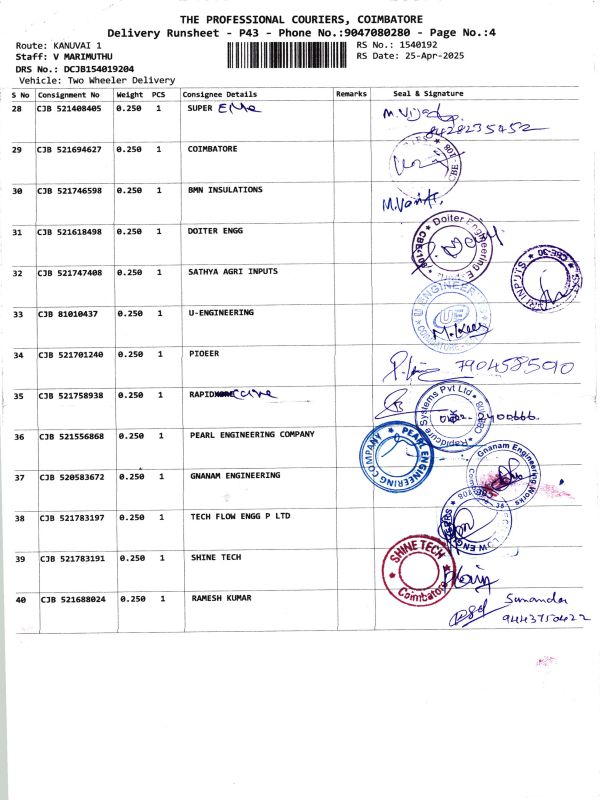 THE PROFESSIONAL COURIERS, COIMBATORE
Delivery Runsheet - P43 - Phone No.:9047080280 - Page No.:4
Route: KANUVAI 1 RS No.: 1540192
Staff: V MARIMUTHU RS Date: 25-Apr-2025
DRS No.: DCJB154019204
Vehicle: Two Wheeler Delivery
S No Consignment No Weight PCS Consignee Details Remarks Seal & Signature
28 CJB 521408405 0.250 1 SUPER
8428235452
29 CJB 521694627 0.250 1 COIMBATORE
30 CJB 521746598 0.250 1 BMN INSULATIONS
31 CJB 521618498 0.250 1 DOITER ENGG Doiter Engineering
32 CJB 521747408 0.250 1 SATHYA AGRI INPUTS CBE-30
33 CJB 81010437 0.250 1 U-ENGINEERING U ENGINEER UE COIMBATORE
34 CJB 521701240 0.250 1 PIOEER 7904585010
35 CJB 521758938 0.250 1 RAPID care Rapidcure Systems Pvt Ltd
36 CJB 521556868 0.250 1 PEARL ENGINEERING COMPANY PEARL ENGINEERING COMPANY
37 CJB 520583672 0.250 1 GNANAM ENGINEERING Gnanam Engineering Works
38 CJB 521783197 0.250 1 TECH FLOW ENGG P LTD
39 CJB 521783191 0.250 1 SHINE TECH SHINE TECH Coimbatore
40 CJB 521688024 0.250 1 RAMESH KUMAR
9443750422